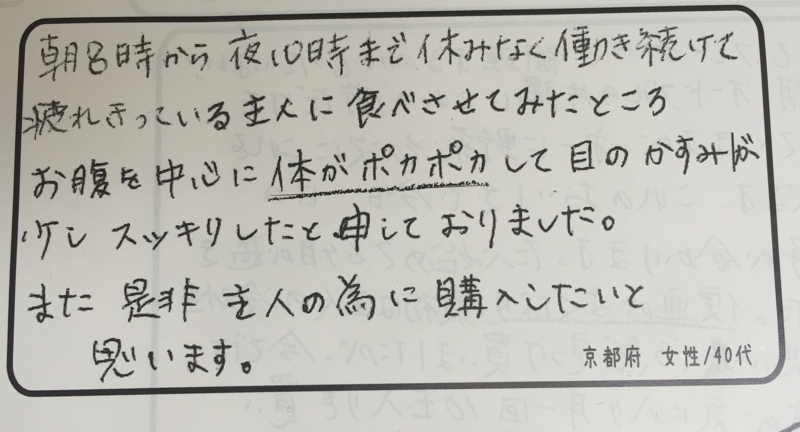 朝8時から夜10時まで休みなく働き続けて
疲れきっている主人に食べさせてみたところ
お腹を中心に体がポカポカして目のかすみが
少しスッキリしたと申しておりました。
また是非主人の為に購入したいと
思います。
京都府 女性/40代